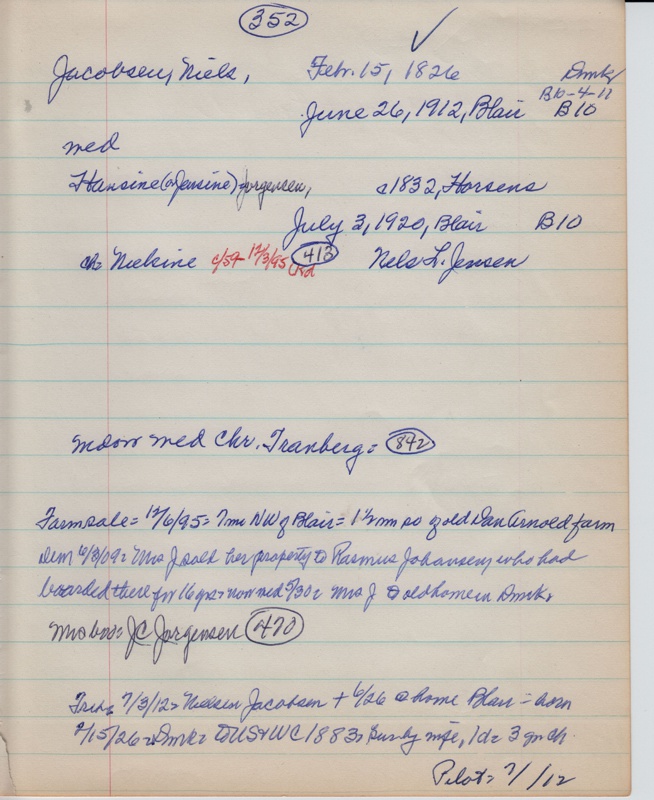 352 ✓
Jacobsen, Niels, Febr. 15, 1826 Dmk
B10-4-11
June 26, 1912, Blair B10
med
Hansine (or Jensine) Jorgensen, c1832, Horsens
July 3, 1920, Blair B10
ch= Nielsine c/59 12/3/95 413 Nels L. Jensen
med Chr. Tranberg= 842
Farm sale= 12/6/95= 7 mi NW of Blair= 1½ mi so of old Dan Arnold farm
Dem 6/3/09= Mrs J sold her property to Rasmus Johansen, who had
boarded there for 16 yrs= now med 5/30= Mrs J to old home in Dmk.
Mrs bro= J.C. Jorgensen 470
7/3/12= Nielsen Jacobsen + 6/26 @ home Blair= born
2/15/26= Dmk= to US & WC 1883= Surv by wife, 1 d= 3 gr ch.
Pilot= 7/ /12